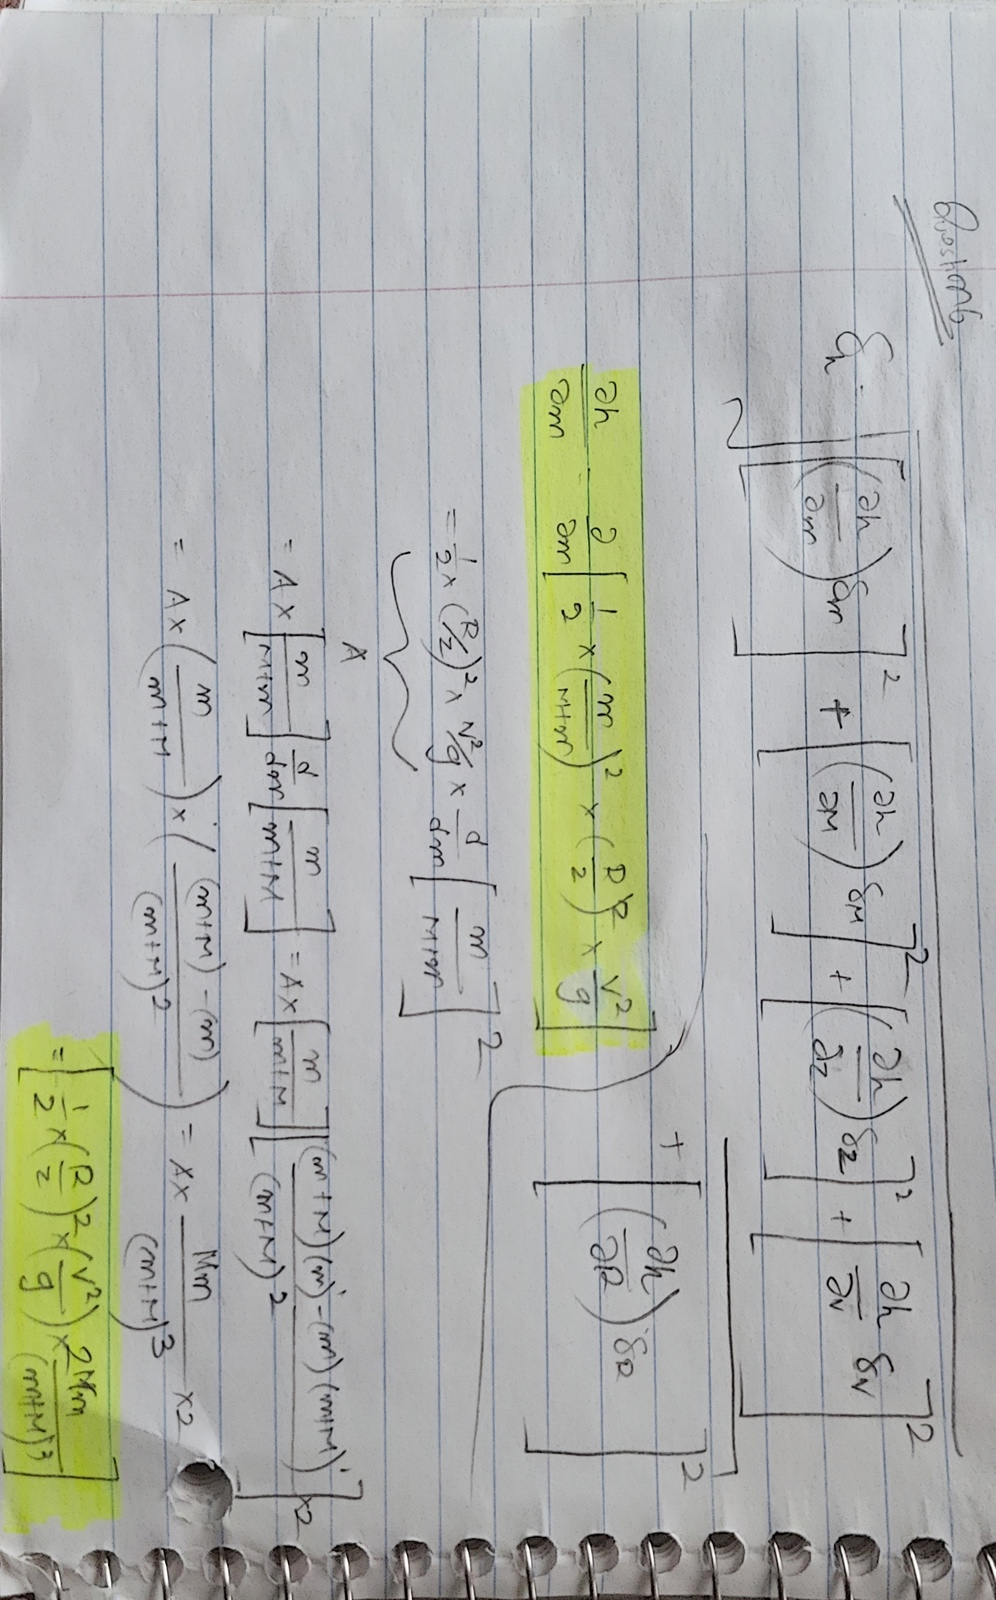 Question 6
δh = √[(∂h/∂m)δm]² + [(∂h/∂M)δM]² + [(∂h/∂z)δz]² + [∂h/∂v δv]²
+ [(∂h/∂R)δR]²
∂h/∂m = ∂/∂m [1/2 × (m/m+M)² × (R/2)² × v²/g]
= 1/2 × (R/2)² × v²/g × d/dm [m/m+M]²
A
= A × [m/m+M] d/dm [m/m+M] = A × [m/m+M] [(m+M)(m)' - (m)(m+M)'/(m+M)²] ×2
= A × (m/m+M) × ((m+M) - (m)/(m+M)²) = A × Mm/(m+M)³ ×2
= [1/2 × (R/2)² × (v²/g) × 2Mm/(m+M)³]